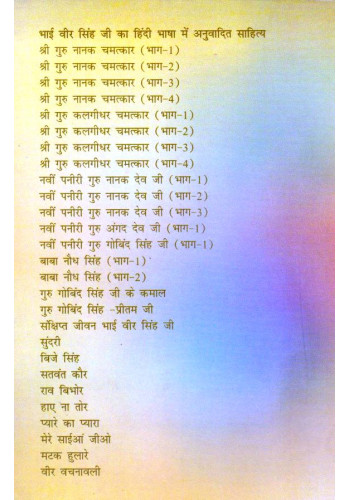 भाई वीर सिंह जी का हिंदी भाषा में अनुवादित साहित्य
श्री गुरु नानक चमत्कार (भाग-1)
श्री गुरु नानक चमत्कार (भाग-2)
श्री गुरु नानक चमत्कार (भाग-3)
श्री गुरु नानक चमत्कार (भाग-4)
श्री गुरु कलगीधर चमत्कार (भाग-1)
श्री गुरु कलगीधर चमत्कार (भाग-2)
श्री गुरु कलगीधर चमत्कार (भाग-3)
श्री गुरु कलगीधर चमत्कार (भाग-4)
नवीं पनीरी गुरु नानक देव जी (भाग-1)
नवीं पनीरी गुरु नानक देव जी (भाग-2)
नवीं पनीरी गुरु नानक देव जी (भाग-3)
नवीं पनीरी गुरु अंगद देव जी (भाग-1)
नवीं पनीरी गुरु गोबिंद सिंह जी (भाग-1)
बाबा नौध सिंह (भाग-1)
बाबा नौध सिंह (भाग-2)
गुरु गोबिंद सिंह जी के कमाल
गुरु गोबिंद सिंह -प्रीतम जी
संक्षिप्त जीवन भाई वीर सिंह जी
सुंदरी
बिजे सिंह
सतवंत कौर
राव बिभोर
हाए ना तोर
प्यारे का प्यारा
मेरे साईआं जीओ
मटक हुलारे
वीर वचनावली